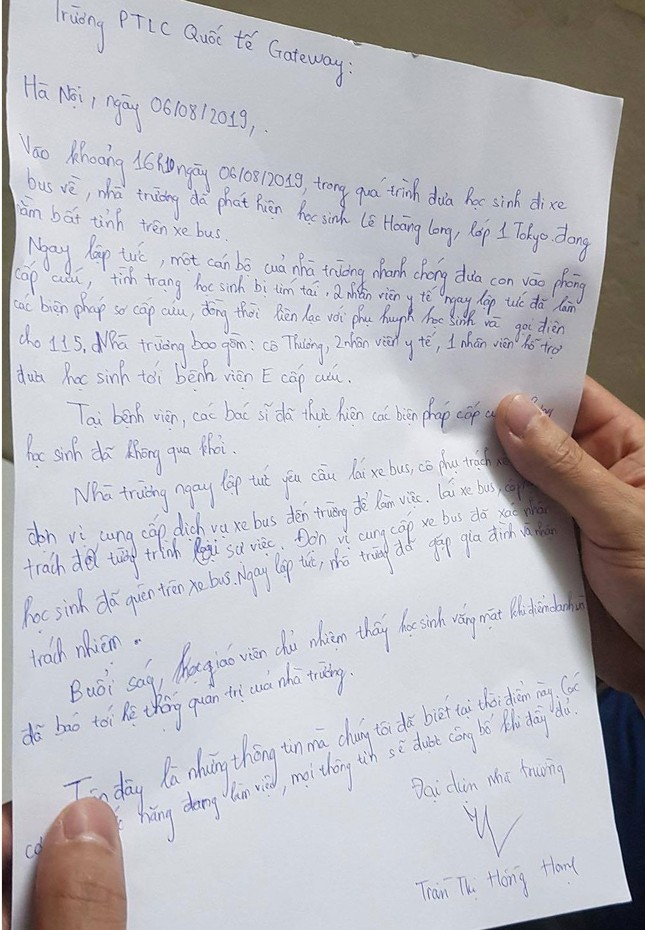 Trường PTLC Quốc tế Gateway:
Hà Nội, ngày 06/08/2019,.
Vào khoảng 16h10 ngày 06/08/2019, trong quá trình đưa học sinh đi xe
bus về, nhà trường đã phát hiện học sinh Lê Hoàng Long, lớp 1 Tokyo. đang
nằm bất tỉnh trên xe bus.
Ngay lập tức, một cán bộ của nhà trường nhanh chóng đưa con vào phòng
cấp cứu, tình trạng học sinh bị tím tái, 2 nhân viên y tế ngay lập tức đã làm
các biện pháp sơ cấp cứu, đồng thời liên lạc với phụ huynh học sinh và gọi điện
cho 115. Nhà trường bao gồm: cô Thương, 2 nhân viên y tế, 1 nhân viên hỗ trợ
đưa học sinh tới bệnh viện E cấp cứu.
Tại bệnh viện, các bác sĩ đã thực hiện các biện pháp cấp
học sinh đã không qua khỏi.
Nhà trường ngay lập tức yêu cầu lái xe bus, cô phụ trách xe
đơn vị cung cấp dịch vụ xe bus đến trường để làm việc. Lái xe bus, cô
trách để tường trình lại sự việc. Đơn vị cung cấp xe bus đã xác nhận
học sinh đã quên trên xe bus. Ngay lập tức, nhà trường đã gặp gia đình và nhận
trách nhiệm.
Buổi sáng, giáo viên chủ nhiệm thấy học sinh vắng mặt khi điểm danh
đã báo tới hệ thống quản trị của nhà trường.
đây là những thông tin mà chúng tôi đã biết tại thời điểm này. Các
năng đang làm việc, mọi thông tin sẽ được công bố khi đầy đủ.
Đại diện nhà trường
Trần Thị Hồng Hạnh